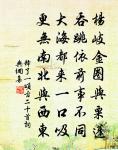 楊岐金圈與栗蓬
吞跳依前事不同
大海都來一口吸
更無南北與西東
釋了一頌古二十首